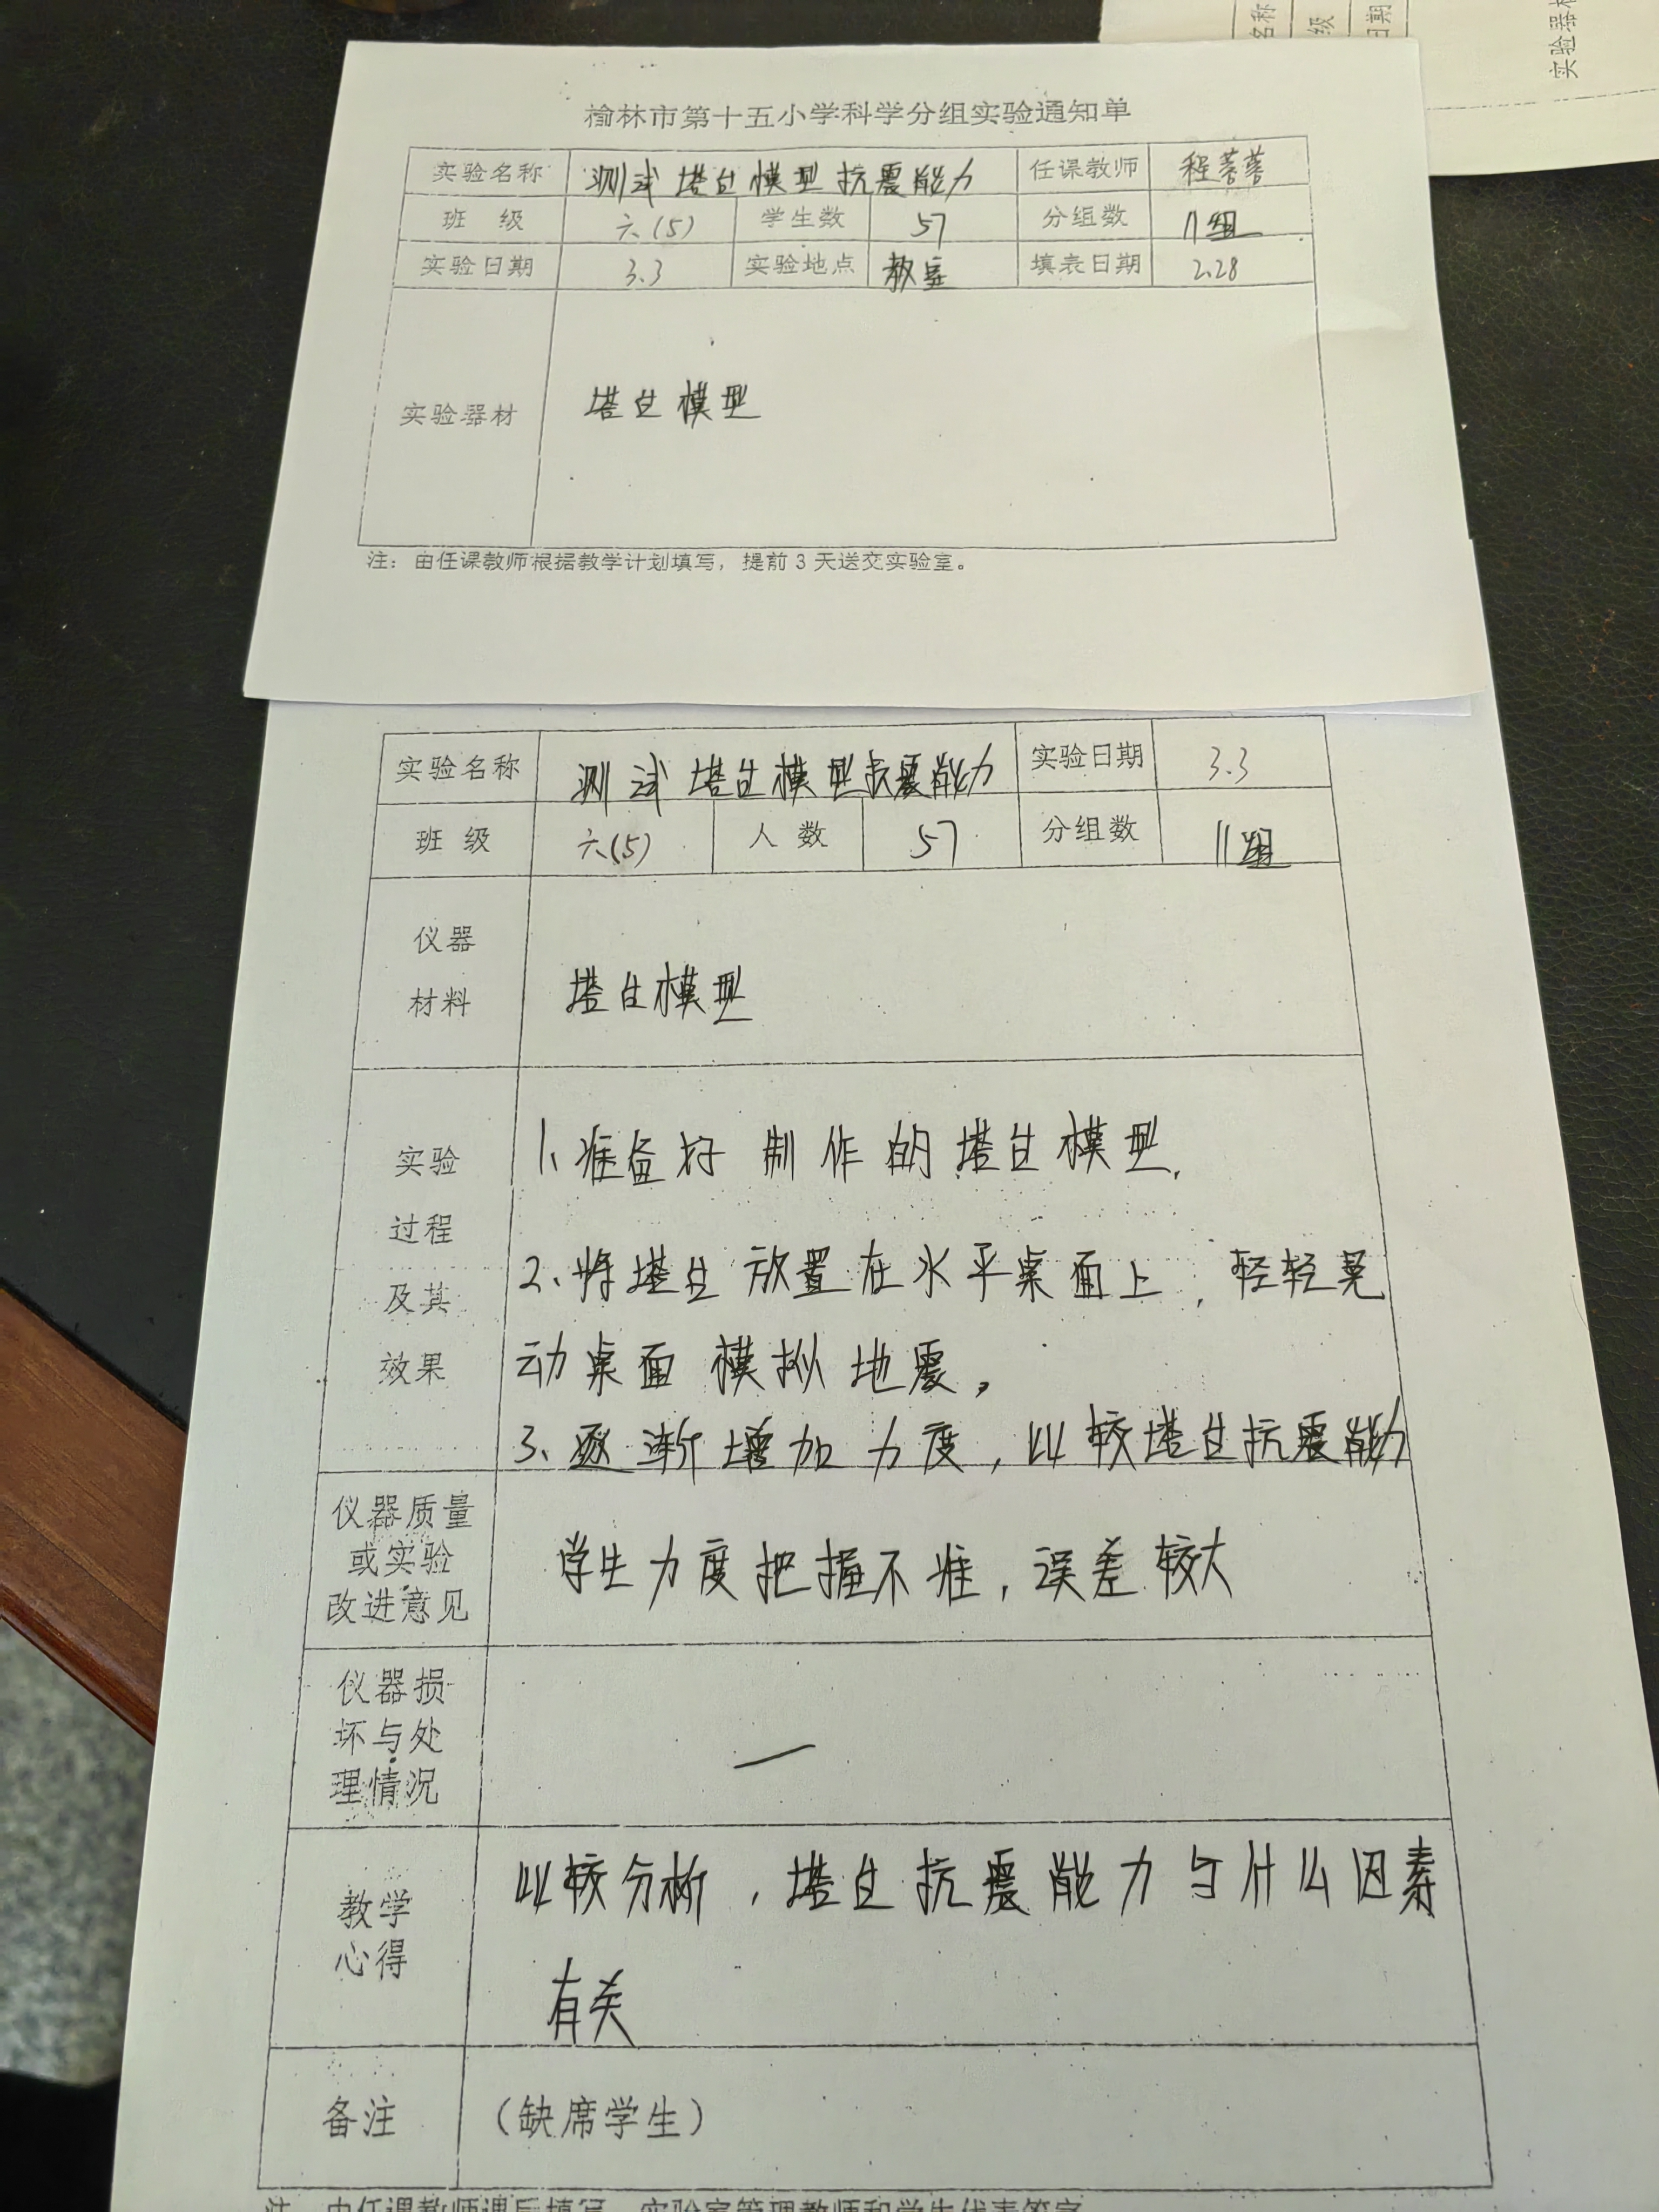 名称
级
日期
实验器材
榆林市第十五小学科学分组实验通知单
实验名称 测试塔台模型抗震能力 任课教师 程蓉蓉
班 级 六(5) 学生数 57 分组数 11组
实验日期 3.3 实验地点 教室 填表日期 2.28
实验器材 塔台模型
注：由任课教师根据教学计划填写，提前 3 天送交实验室。
实验名称 测试塔台模型抗震能力 实验日期 3.3
班 级 六(5) 人 数 57 分组数 11组
仪器
材料
塔台模型
实验
过程
及其
效果
1、准备好制作的塔台模型,
2、将塔台放置在水平桌面上，轻轻晃
动桌面模拟地震，
3、逐渐增加力度，比较塔台抗震能力
仪器质量
或实验
改进意见
学生力度把握不准，误差较大
仪器损
坏与处
理情况
—
教学
心得
比较分析，塔台抗震能力与什么因素
有关
备注 （缺席学生）
注：由任课教师课后填写，实验室管理教师和学生代表签字